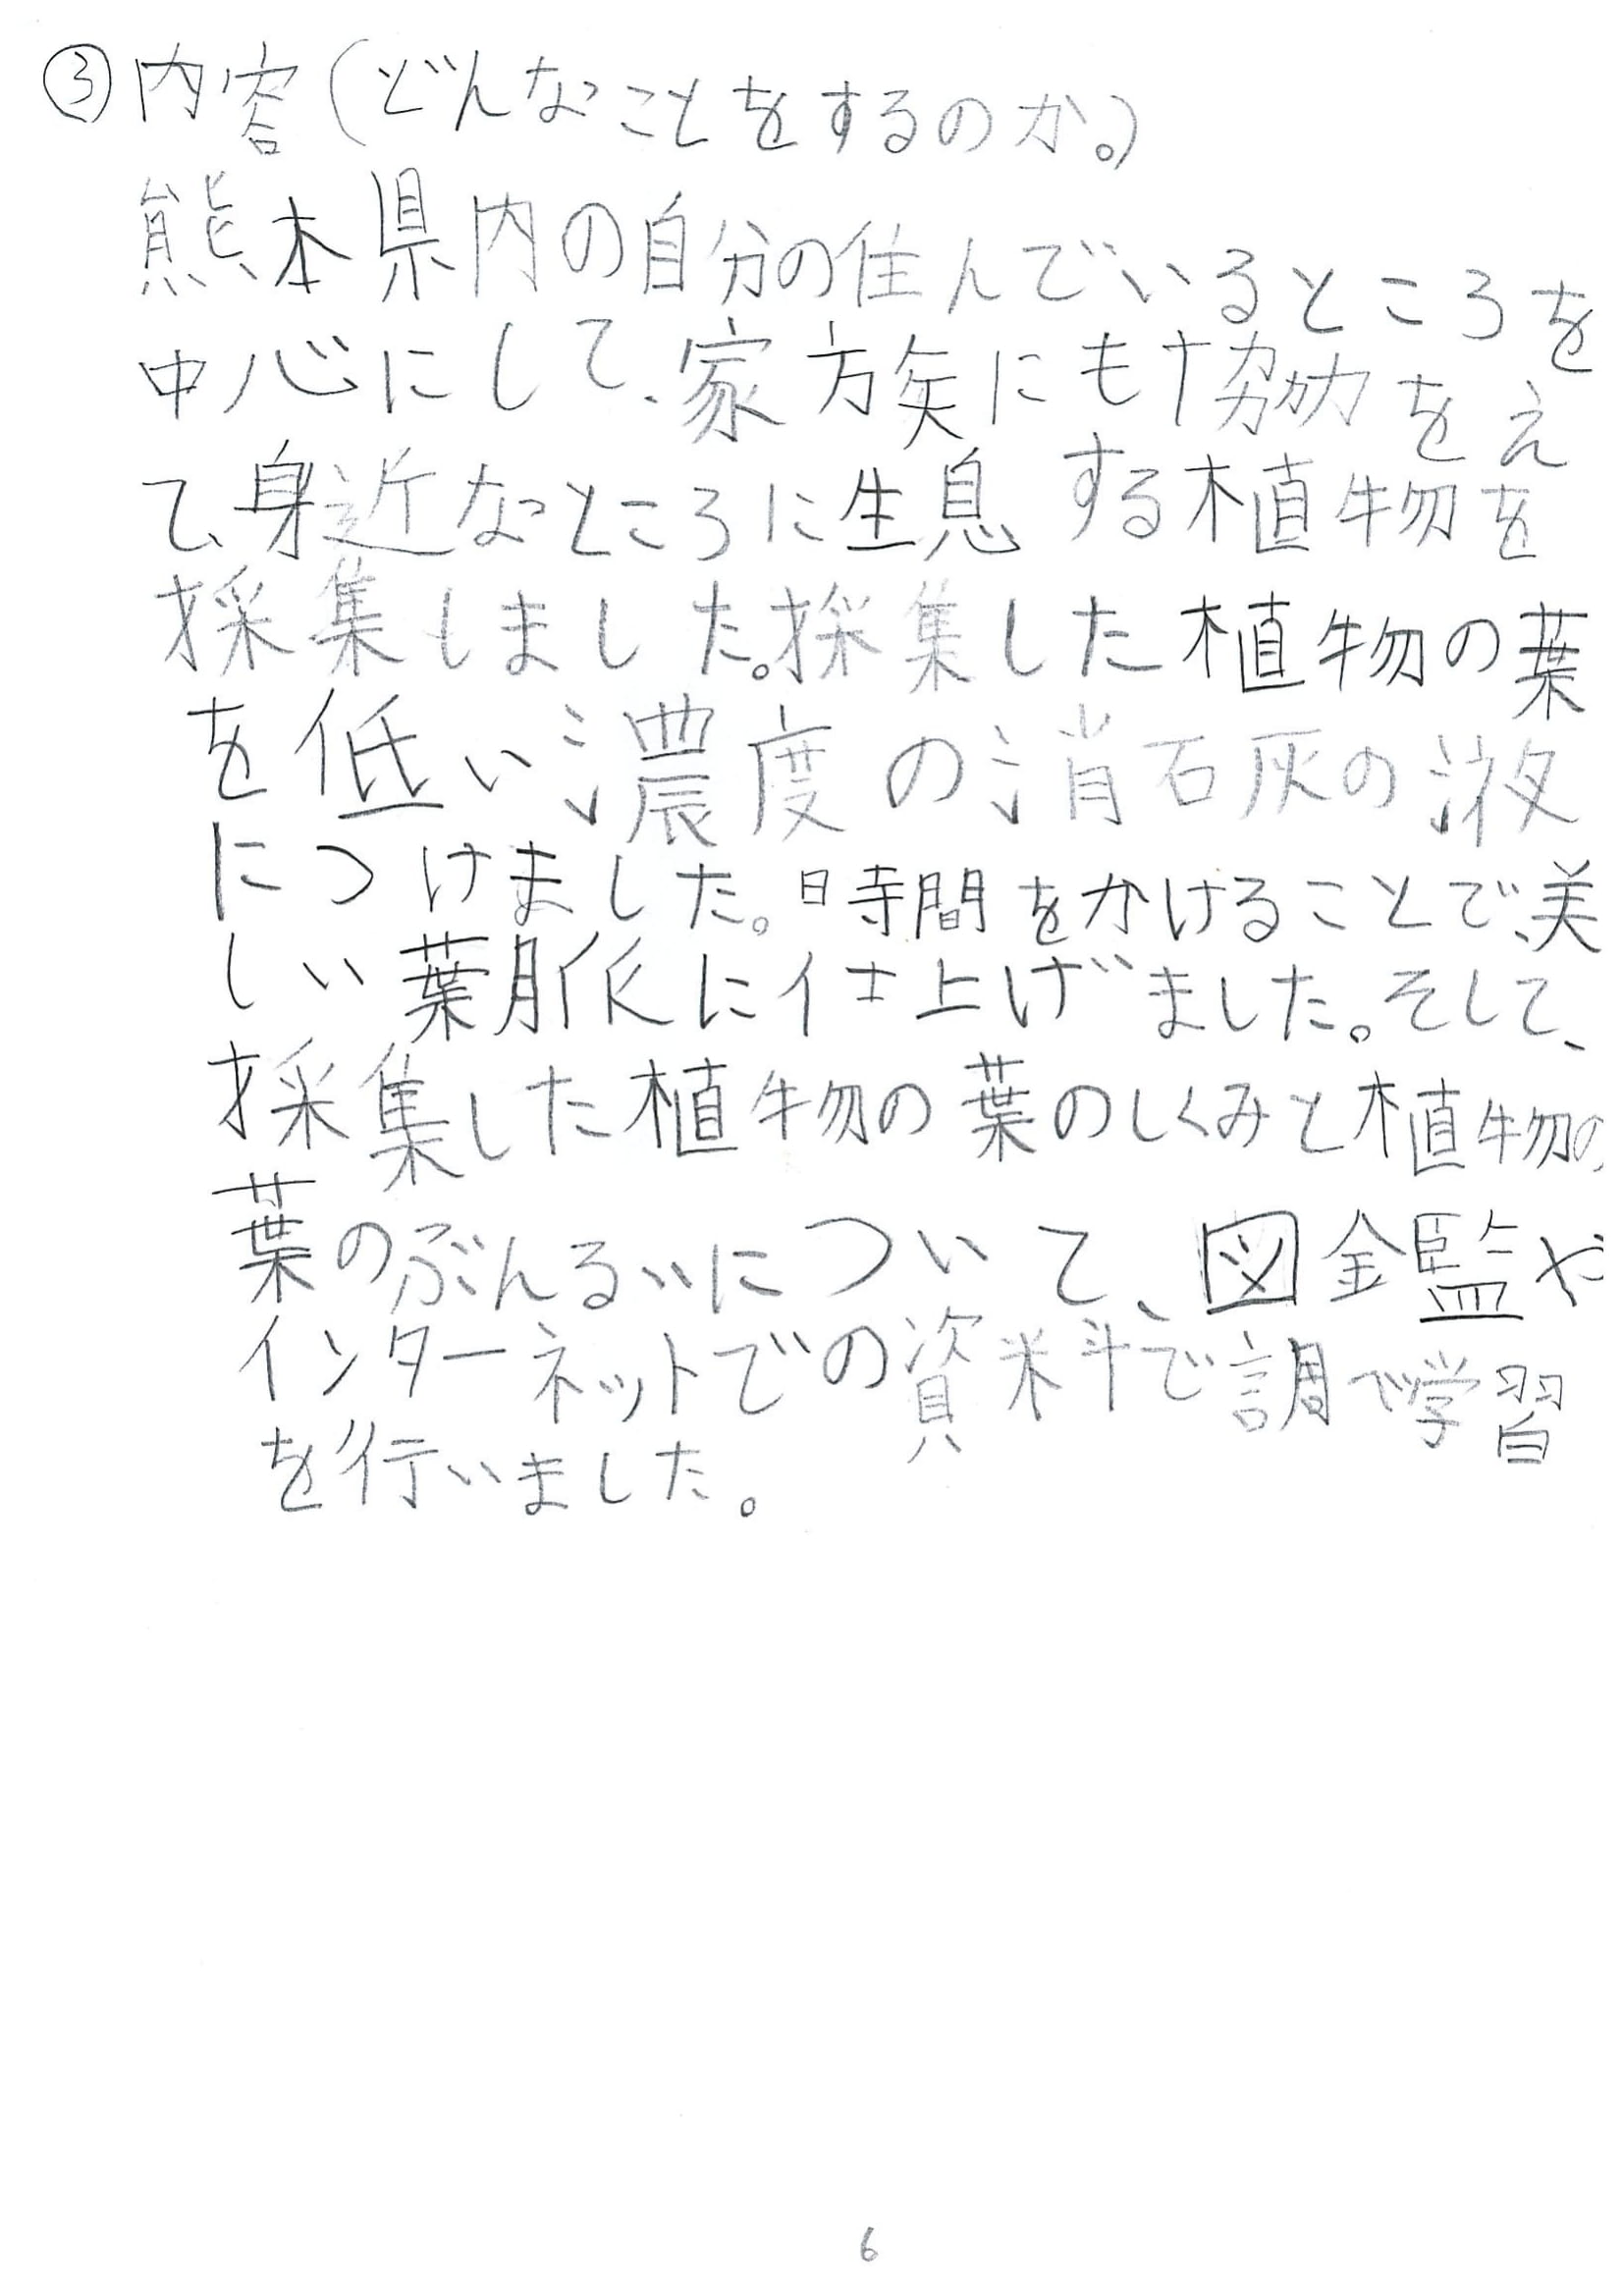 ③内容(どんなことをするのか。)
熊本県内の自分の住んでいるところを
中心にして、家族にも協力をえ
て、身近なところに生息する植物を
採集しました。採集した植物の葉
を低い濃度の消石灰の液
につけました。時間をかけることで、美
しい葉脈に仕上げました。そして、
採集した植物の葉のしくみと植物の
葉のぶんるいについて、図鑑や
インターネットでの資料で調べ学習
を行いました。
6